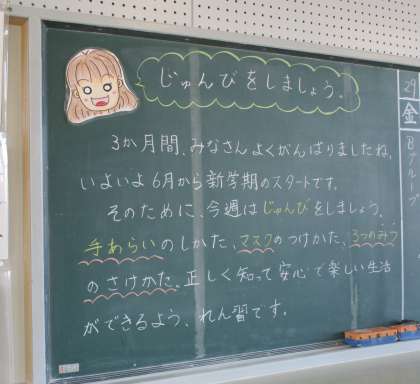 じゅんびをしましょう。
3か月間、みなさんよくがんばりましたね。
いよいよ6月から新学期のスタートです。
そのために、今週はじゅんびをしましょう。
手あらいのしかた、マスクのつけかた、3つのみつ
のさけかた。正しく知って安心で楽しい生活
ができるよう、れん習です。
29
金
Bグループ